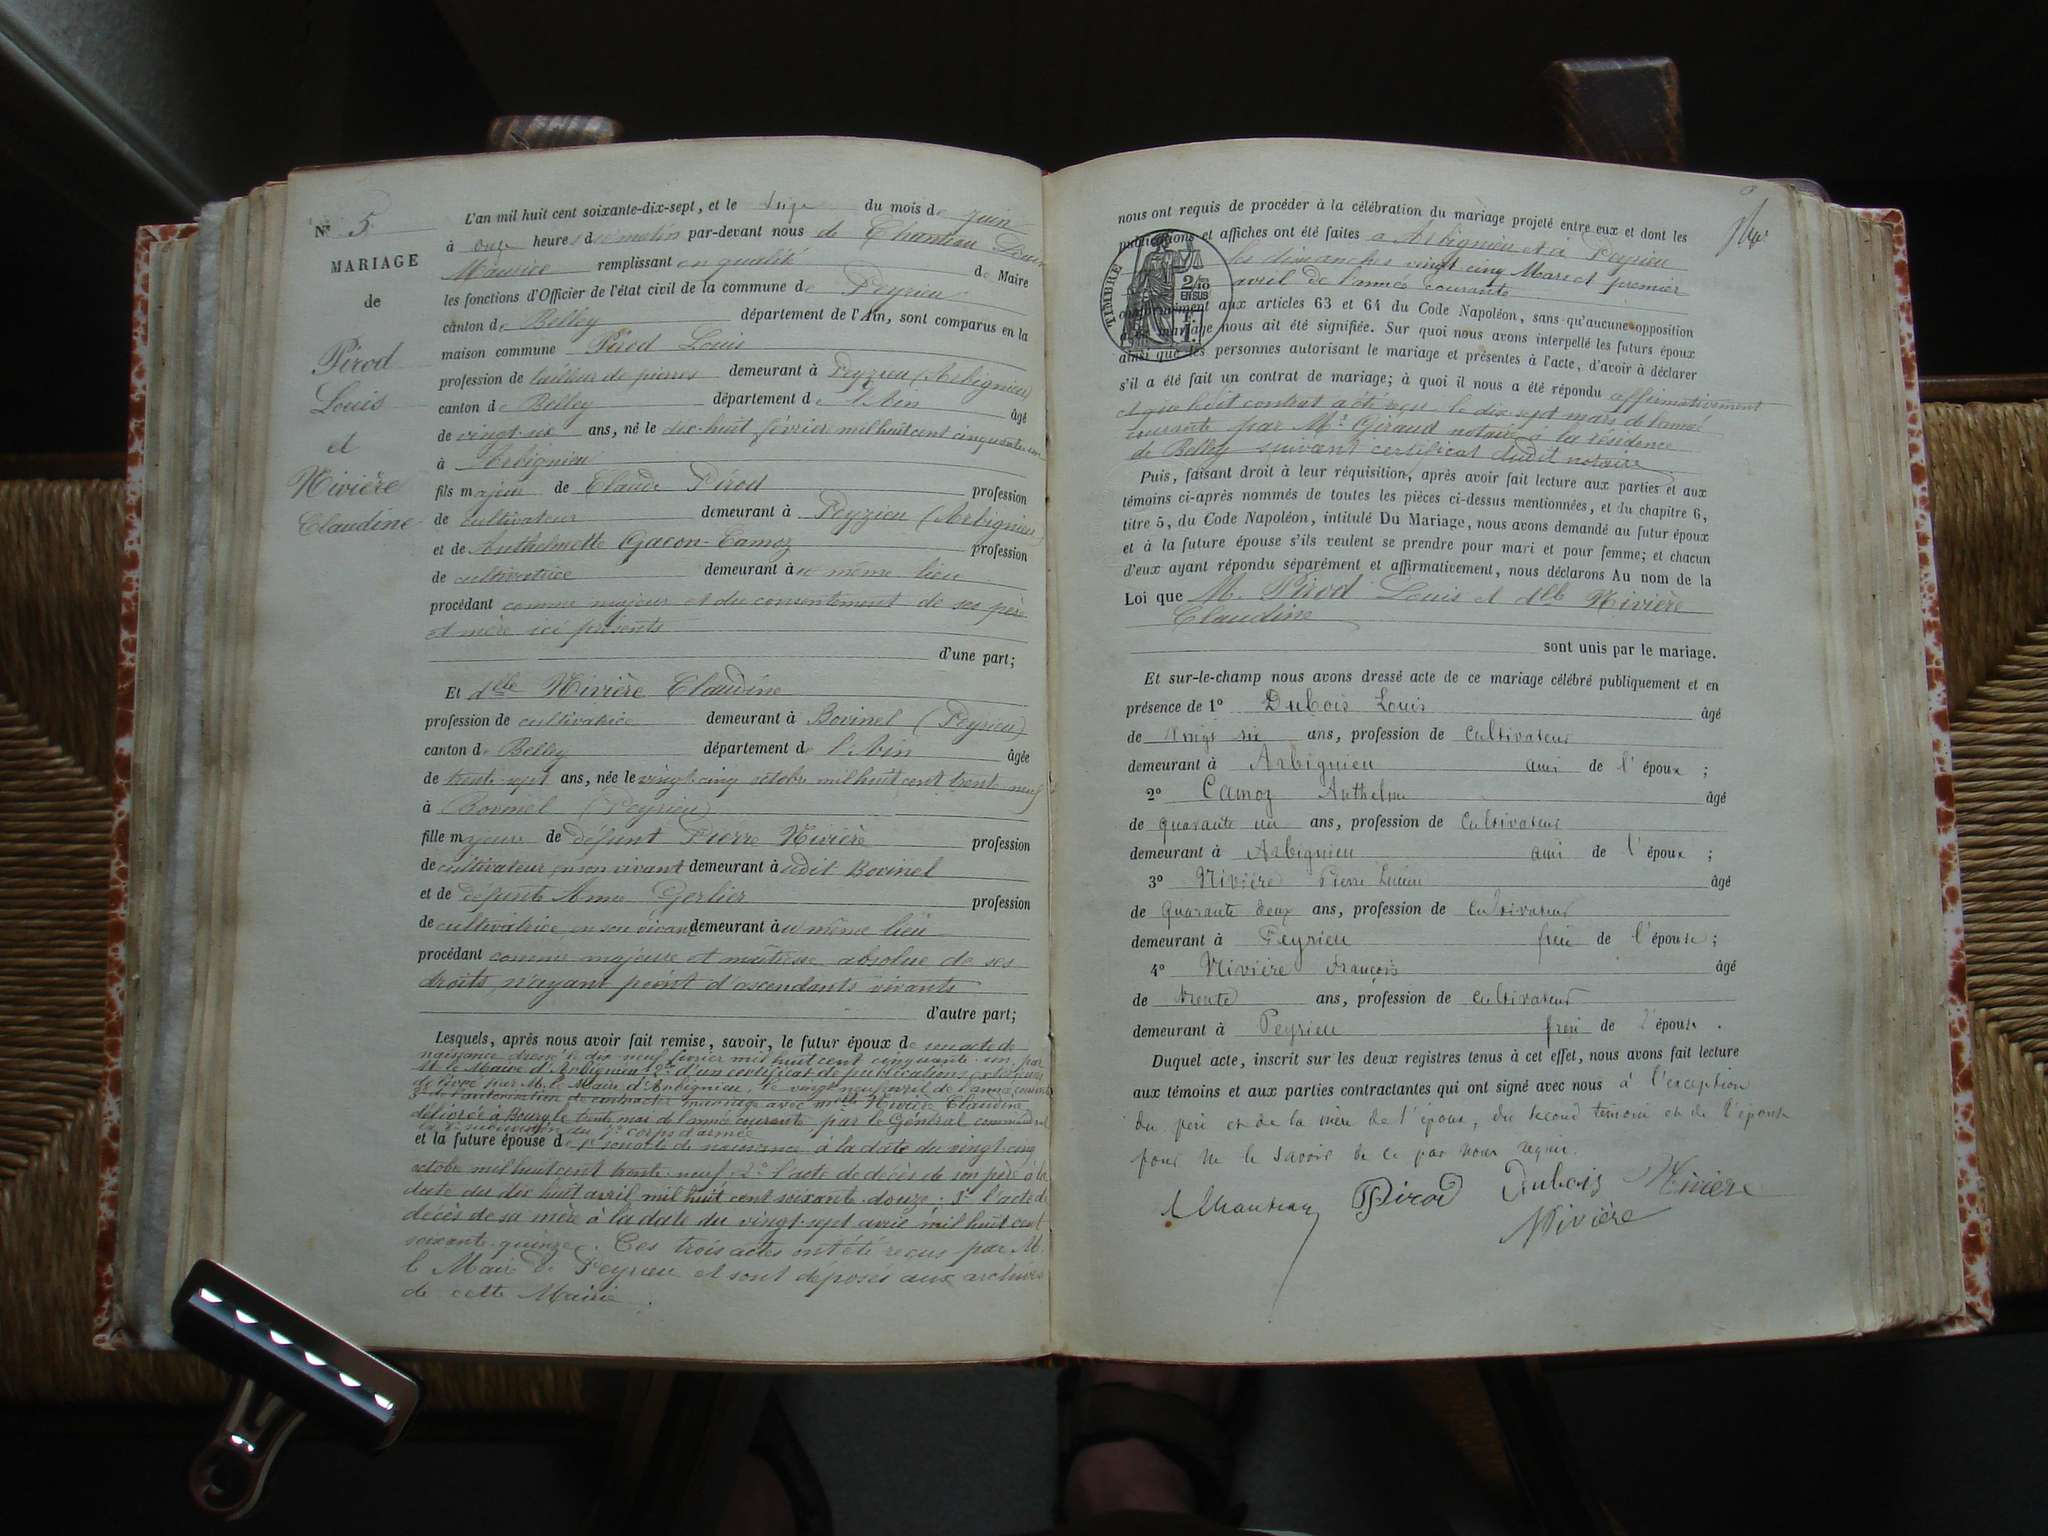 N° 5
MARIAGE
de
Pirod
Louis
et
Nivière
Claudine
L'an mil huit cent soixante-dix-sept, et le du mois de juin
à onze heures du matin par-devant nous de Chanteau Louis
Maurice remplissant en qualité de Maire
les fonctions d'Officier de l'état civil de la commune de Peyrieu
canton de Belley département de l'Ain, sont comparus en la
maison commune Pirod Louis
profession de tailleur de pierres demeurant à Peyzieu (Arbignieu)
canton de Belley département de l'Ain âgé
de vingt-six ans, né le dix-huit février mil huit cent cinquante-un
à Arbignieu
fils majeur de Claude Pirod profession
de cultivateur demeurant à Peyzieu (Arbignieu)
et de Anthelmette Gacon-Camoz profession
de cultivatrice demeurant à u même lieu
procédant comme majeur et du consentement de ses père
et mère ici présents
d'une part;
Et dlle Nivière Claudine
profession de cultivatrice demeurant à Bovinel (Peyrieu)
canton de Belley département de l'Ain âgée
de trente-sept ans, née le vingt-cinq octobre mil huit cent trente-neuf
à Bovinel (Peyrieu)
fille majeure de défunt Pierre Nivière profession
de cultivateur, en son vivant demeurant à udit Bovinel
et de défunte Anne Gerlier profession
de cultivatrice en son vivant demeurant à u même lieu
procédant comme majeure et maîtresse absolue de ses
droits, n'ayant point d'ascendants vivants
d'autre part;
Lesquels, après nous avoir fait remise, savoir, le futur époux de son acte de
naissance dressé le dix-neuf février mil huit cent cinquante-un par
M. le Maire d'Arbignieu 2° d'un certificat de publications
délivré par M. le Maire d'Arbignieu, le vingt-neuf avril de l'année courante
3° de l'autorisation de contracter mariage avec Mlle Nivière Claudine
délivrée à Bourg le trente mai de l'année courante par le Général commandant
la subdivision du 7e corps d'armée
et la future épouse de 1° son acte de naissance à la date du vingt-cinq
octobre mil huit cent trente-neuf; 2° l'acte de décès de son père à la
date du dix-huit avril mil huit cent soixante-douze; 3° l'acte de
décès de sa mère à la date du vingt-sept avril mil huit cent
soixante-quinze. Ces trois actes ont été reçus par M.
le Maire de Peyrieu et sont déposés aux archives
de cette Mairie.
nous ont requis de procéder à la célébration du mariage projeté entre eux et dont les
publications et affiches ont été faites à Arbignieu et à Peyrieu
les dimanches vingt-cinq Mars et premier
avril de l'année courante
conformément aux articles 63 et 64 du Code Napoléon, sans qu'aucune opposition
mariage nous ait été signifiée. Sur quoi nous avons interpellé les futurs époux
ainsi que les personnes autorisant le mariage et présentes à l'acte, d'avoir à déclarer
s'il a été fait un contrat de mariage; à quoi il nous a été répondu affirmativement
et que huit contrat a été reçu le dix-sept mars de l'année
courante par Me Giraud notaire à la résidence
de Belley suivant certificat dudit notaire
TIMBRE
2/10
EN SUS
1 F.
Puis, faisant droit à leur réquisition, après avoir fait lecture aux parties et aux
témoins ci-après nommés de toutes les pièces ci-dessus mentionnées, et du chapitre 6,
titre 5, du Code Napoléon, intitulé Du Mariage, nous avons demandé au futur époux
et à la future épouse s'ils veulent se prendre pour mari et pour femme; et chacun
d'eux ayant répondu séparément et affirmativement, nous déclarons Au nom de la
Loi que M. Pirod Louis et dlle Nivière
Claudine
sont unis par le mariage.
Et sur-le-champ nous avons dressé acte de ce mariage célébré publiquement et en
présence de 1° Dubois Louis âgé
de vingt six ans, profession de cultivateur
demeurant à Arbignieu ami de l'époux;
2° Camoz Anthelme âgé
de quarante un ans, profession de cultivateur
demeurant à Arbignieu ami de l'époux;
3° Nivière Pierre Lucien âgé
de quarante deux ans, profession de cultivateur
demeurant à Peyrieu frère de l'épouse;
4° Nivière François âgé
de trente ans, profession de cultivateur
demeurant à Peyrieu frère de l'épouse.
Duquel acte, inscrit sur les deux registres tenus à cet effet, nous avons fait lecture
aux témoins et aux parties contractantes qui ont signé avec nous à l'exception
du père et de la mère de l'époux, du second témoin et de l'épouse
pour ne le savoir de ce par nous requis.
Pirod Dubois Nivière
Nivière